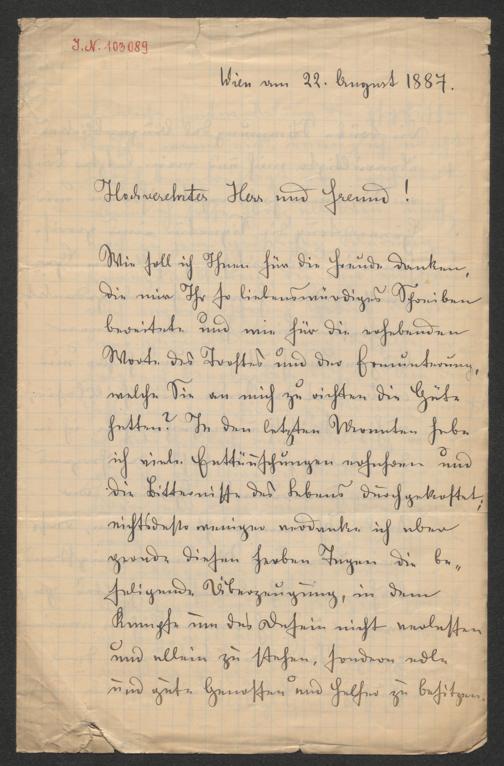 J.N. 103089
Wien am 22. August 1887.
Hochverehrter Herr und Freund!
Wie soll ich Ihnen für die Freude danken,
die mir Ihr so liebenswürdiges Schreiben
bereitete und wie für die erhebenden
Worte des Trostes und der Ermunterung,
welche Sie an mich zu richten die Güte
hatten? In den letzten Monaten habe
ich viele Enttäuschungen erfahren und
die Bitternisse des Lebens durchgekostet;
nichtsdestoweniger verdanke ich aber
gerade diesen herben Tagen die be„
seligende Überzeugung, in dem
Kampfe um das Dasein nicht verlassen
und allein zu stehen, sondern edle
und gute Genossen und Helfer zu besitzen.